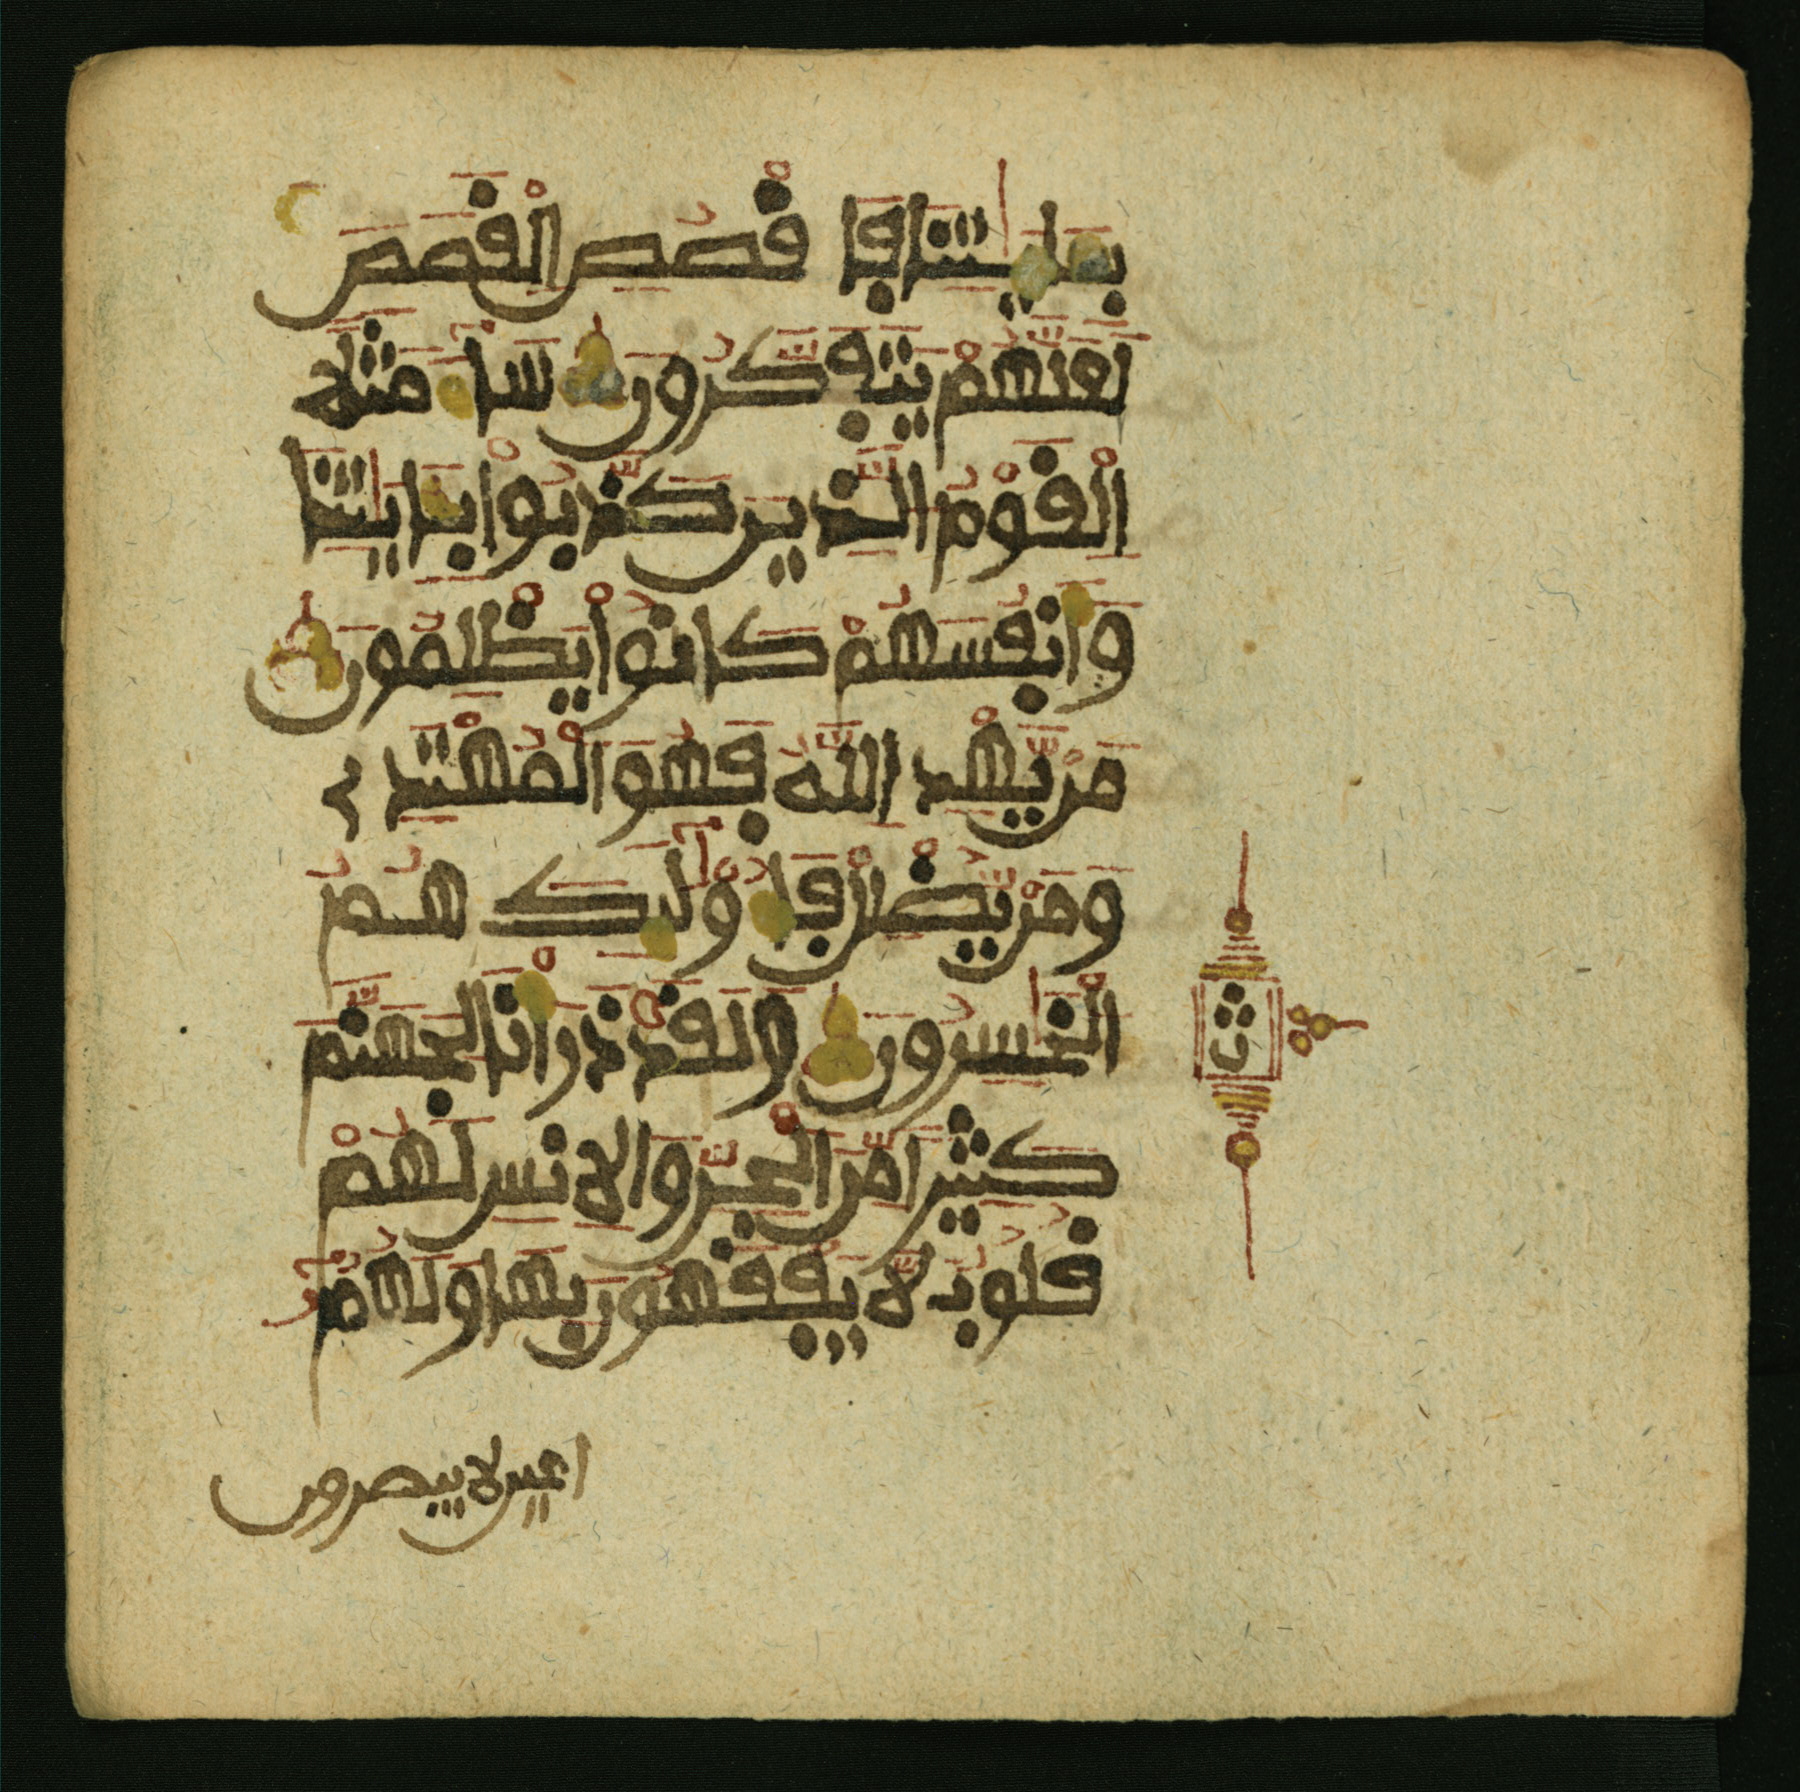 بـايتنا فاقصص القصص
لعلهم يتفكرون ساء مثلا
القوم الذين كذبوا بـايتنا
وانفسهم كانوا يظلمون
من يهد الله فهو المهتد
ومن يضلل فاولئك هم
الخسرون ولقد ذرانا لجهنم
كثيرا من الجن والانس لهم
قلوب لا يفقهون بها ولهم
اعين لا يبصرون
ث